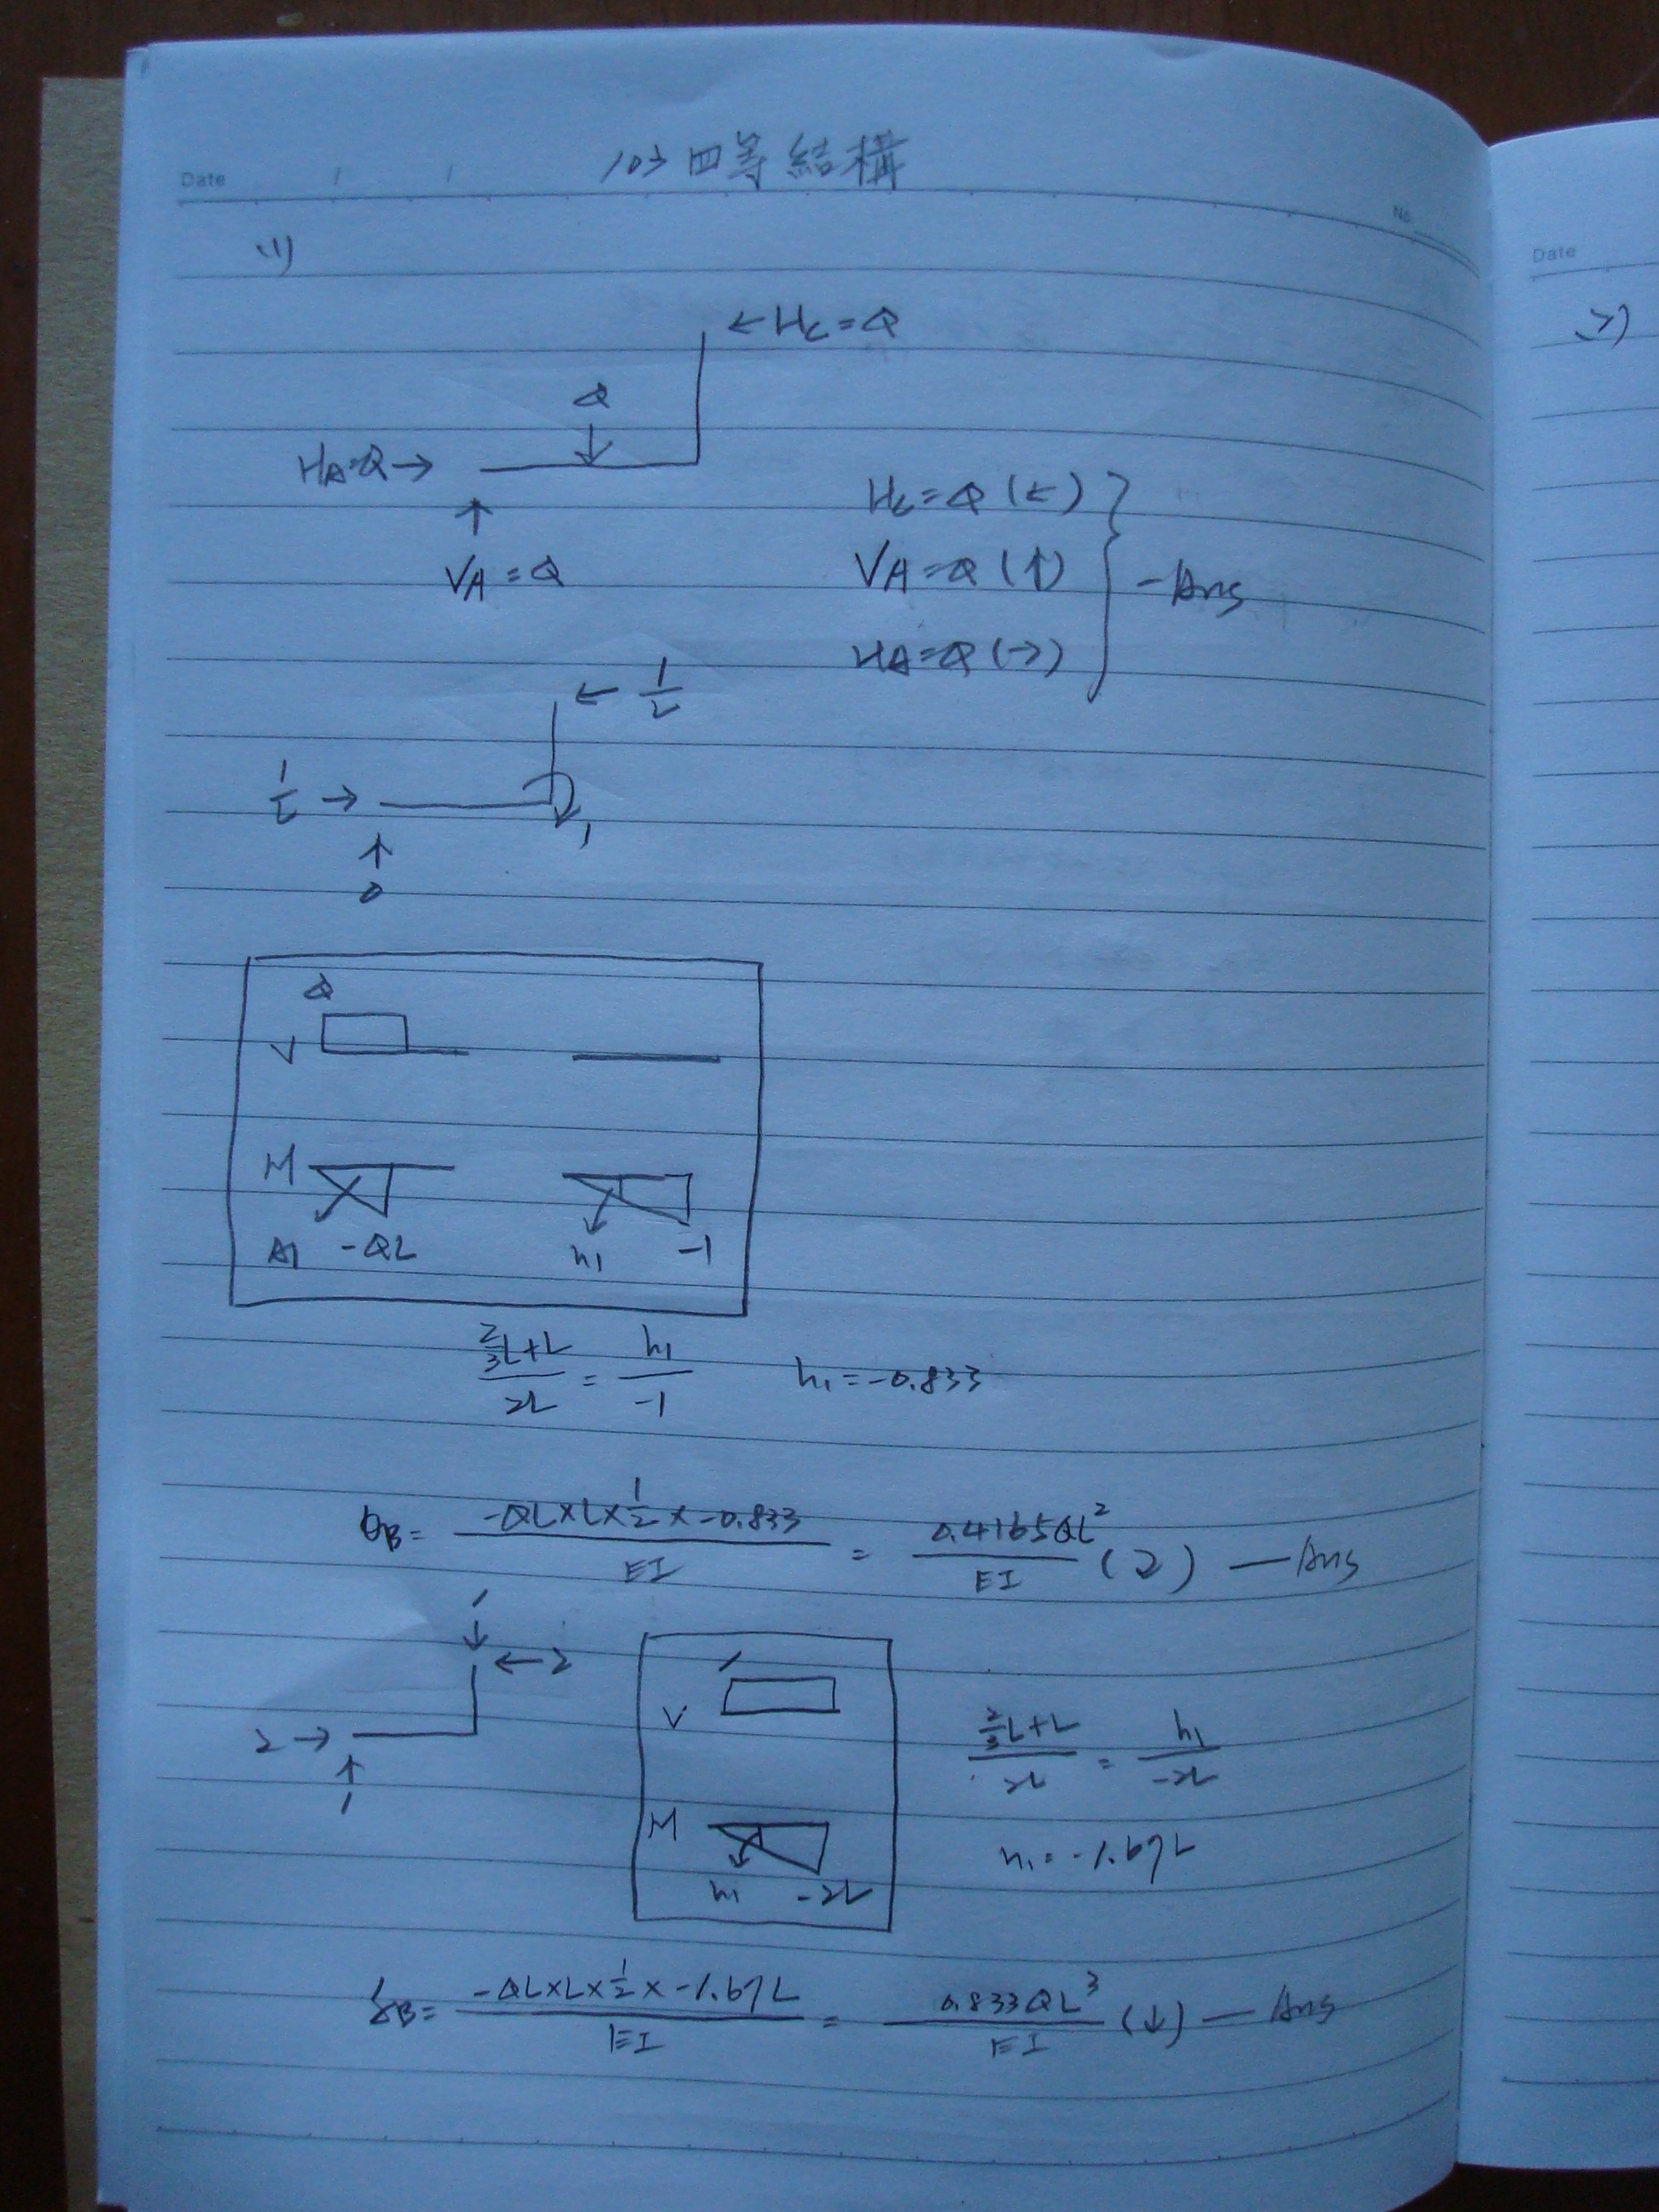 103 四等結構
Date / /
No.
Date
(1)
←Hc=Q
Q
↓
HA=Q→
↑
VA=Q
Hc=Q(←)
VA=Q(↑)
HA=Q(→)
-Ans
← 1/L
1/L →
1
↑
0
Q
V
M
A1 -QL
h1 -1
(2/3L+L)/2L = h1/-1
h1=-0.833
θB= (-QL×L×1/2×-0.833)/EI = 0.4165QL²/EI (2) —Ans
1
↓
←2
2→
↑
1
1
V
M
h1 -2L
(2/3L+L)/2L = h1/-2L
h1=-1.67L
δB= (-QL×L×1/2×-1.67L)/EI = 0.833QL³/EI (↓) — Ans